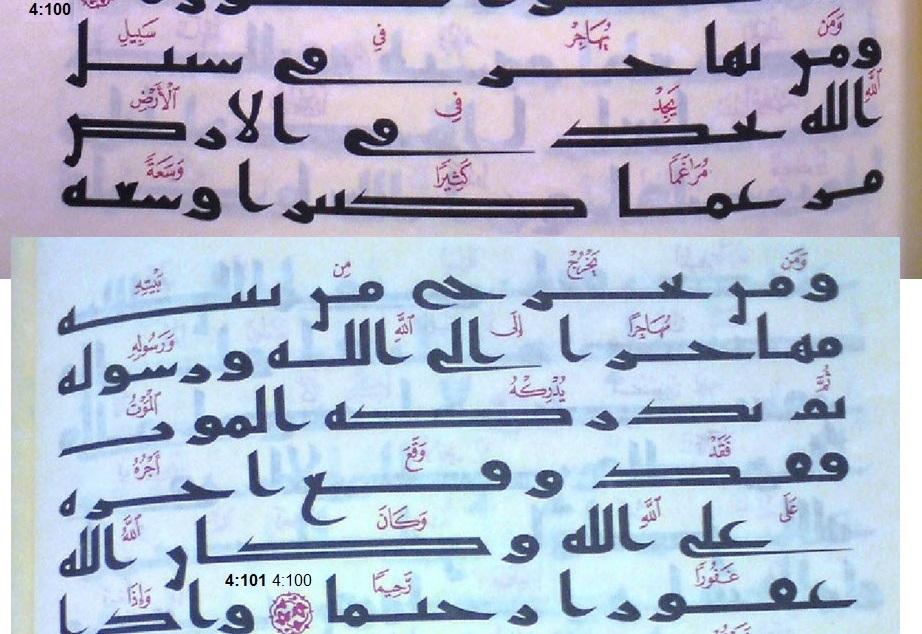 4:100
وَمَن يُهَاجِرْ فِي سَبِيلِ
ومن يهاجر في سبيل
ٱللَّهِ يَجِدْ فِي ٱلْأَرْضِ
الله يجد في الارض
مُرَاغَمًا كَثِيرًا وَسَعَةً
مرغما كثيرا وسعه
وَمَن يَخْرُجْ مِن بَيْتِهِ
ومن يخرج من بيته
مُهَاجِرًا إِلَى ٱللَّهِ وَرَسُولِهِ
مهاجرا الى الله ورسوله
ثُمَّ يُدْرِكْهُ ٱلْمَوْتُ
ثم يدركه الموت
فَقَدْ وَقَعَ أَجْرُهُ
فقد وقع اجره
عَلَى ٱللَّهِ وَكَانَ ٱللَّهُ
على الله وكان الله
4:101 4:100
غَفُورًا رَّحِيمًا وَإِذَا
غفورا رحيما واذا